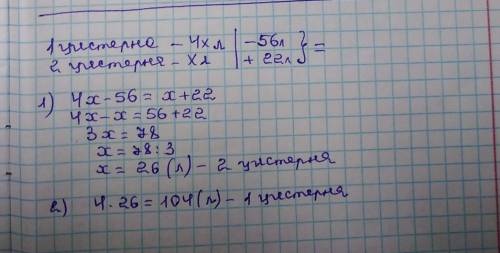 1 цистерна - 4x л | -56л } =
2 цистерня - x л | + 22л
1) 4x - 56 = x + 22
4x - x = 56 + 22
3x = 78
x = 78 : 3
x = 26 (л) - 2 цистерня
2) 4 · 26 = 104 (л) - 1 цистерня